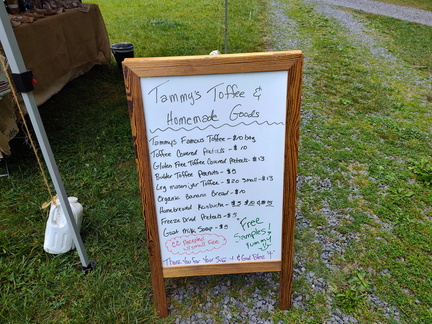 Tammy's Toffee &
Homemade Goods
Tammys Famous Toffee - $10 bag
Toffee Covered Pretzels - $10
Gluten Free Toffee Covered Pretzels - $13
Butter Toffee Peanuts - $5
Lrg mason jar Toffee - $20 Small - $13
Organic Banana Bread - $10
Homebrewed Kombucha - $5 $10
Freeze Dried Pretzels - $5
Goat Milk Soap - $5
CC Accepted
Small Fee
Free
Samples!
Yummy
Thank You for Your & God Bless